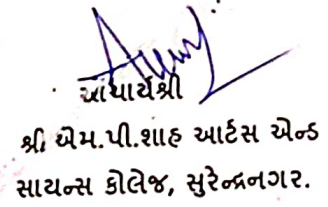 આચાર્યશ્રી
શ્રી એમ.પી.શાહ આર્ટસ એન્ડ
સાયન્સ કોલેજ, સુરેન્દ્રનગર.